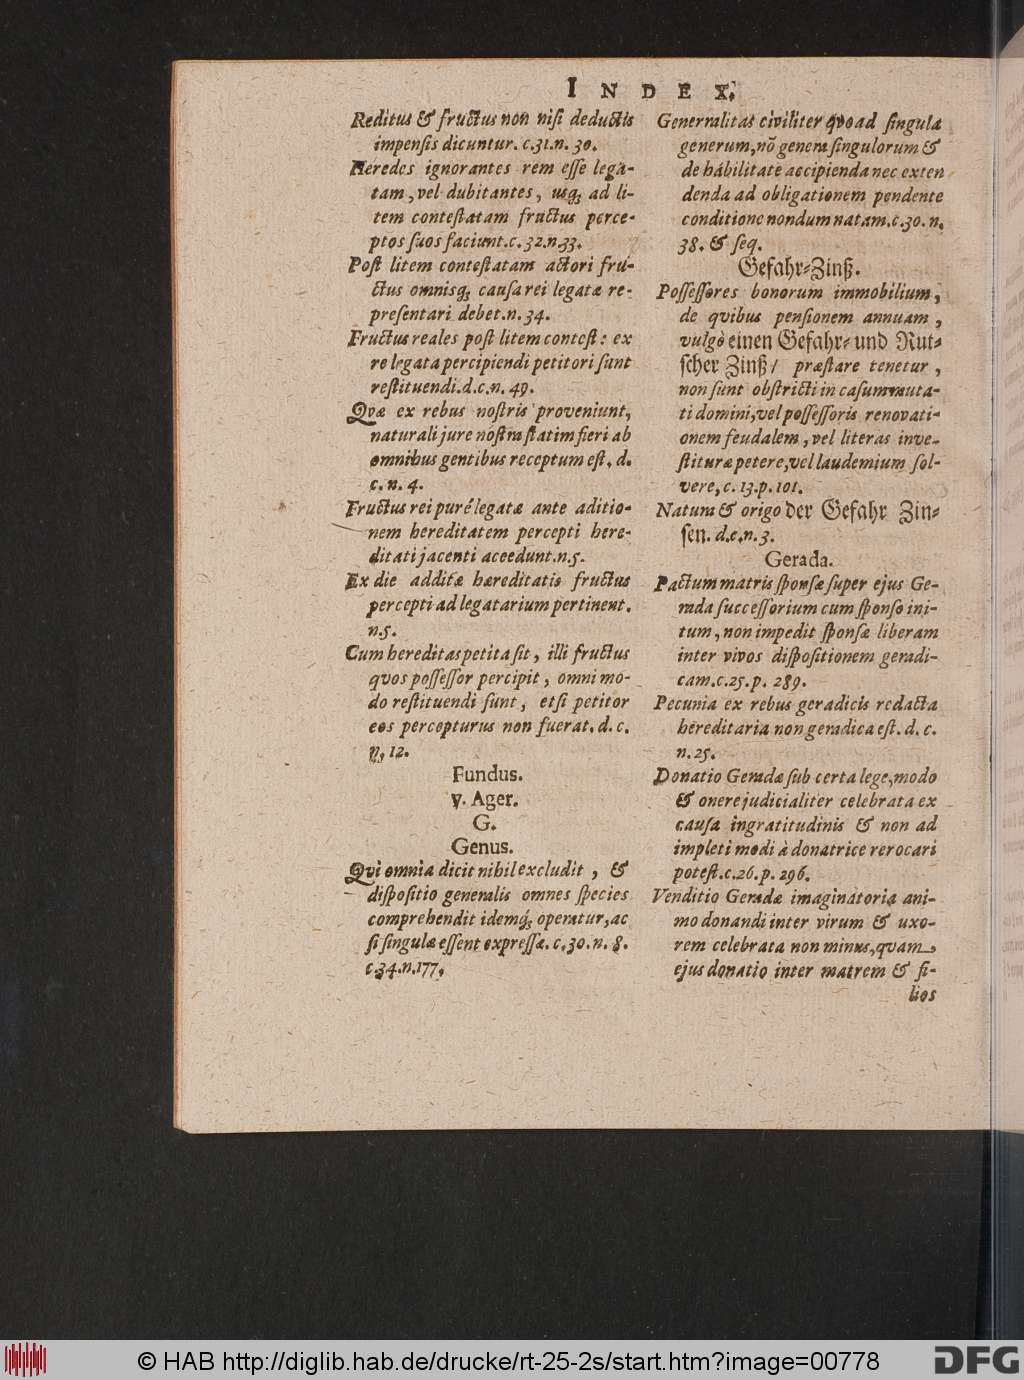 INDEX.
Reditus & fructus non nisi deductis
impensis dicuntur. c.31.n. 30.
Heredes ignorantes rem esse lega-
tam, vel dubitantes, usq; ad li-
tem contestatam fructus perce-
ptos suos faciunt.c. 32.n.33.
Post litem contestatam actori fru-
ctus omnisq; causa rei legatæ re-
presentari debet.n. 34.
Fructus reales post litem contest: ex
re legata percipiendi petitori sunt
restituendi.d.c.n. 49.
Qvæ ex rebus nostris proveniunt,
naturali jure nostra statim fieri ab
omnibus gentibus receptum est. d.
c. n. 4.
Fructus rei purè legatæ ante aditio-
nem hereditatem percepti here-
ditati jacenti accedunt.n.5.
Ex die additæ hæreditatis fructus
percepti ad legatarium pertinent.
n.5.
Cum hereditas petita sit, illi fructus
quos possessor percipit, omni mo-
do restituendi sunt, etsi petitor
eos percepturus non fuerat. d. c.
n. 12.
Fundus.
v. Ager.
G.
Genus.
Qvi omnia dicit nihil excludit, &
dispositio generalis omnes species
comprehendit idemq́; operatur, ac
si singulæ essent expressæ. c. 30. n. 8.
c.34.n.177.
Generralitas civiliter qvoad singula
generum, nō genera singulorum &
de habilitate accipienda nec exten
denda ad obligationem pendente
conditione nondum natam.c.30. n.
38. & seq.
Gefahr-Zinß.
Possessores bonorum immobilium,
de qvibus pensionem annuam,
vulgò einen Gefahr- und Rut-
scher Zinß / præstare tenetur,
non sunt obstricti in casum muta-
ti domini, vel possessoris renovati-
onem feudalem, vel literas inve-
stituræ petere, vel laudemium sol-
vere, c. 13. p. 101.
Natura & origo der Gefahr Zin-
sen. d.c.n. 3.
Gerada.
Pactum matris sponsæ super ejus Ge-
rada successorium cum sponso ini-
tum, non impedit sponsæ liberam
inter vivos dispositionem geradi-
cam.c.25. p. 289.
Pecunia ex rebus geradicis redacta
hereditaria non geradica est. d. c.
n. 25.
Donatio Geradæ sub certa lege, modo
& onere judicialiter celebrata ex
causa ingratitudinis & non ad
impleti modi à donatrice rerocari
potest.c.26. p. 296.
Venditio Geradæ imaginatoria ani-
mo donandi inter virum & uxo-
rem celebrata non minus, qvam
ejus donatio inter matrem & fi-
lios
© HAB http://diglib.hab.de/drucke/rt-25-2s/start.htm?image=00778
DFG